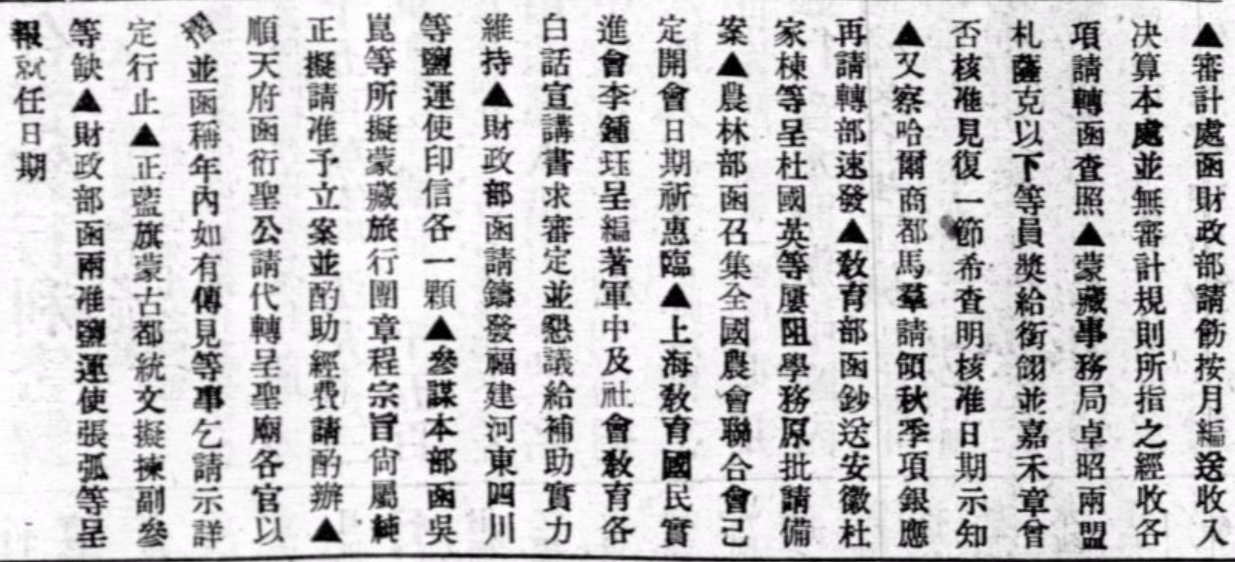 ▲審計處函財政部請飭按月編送收入
決算本處並無審計規則所指之經收各
項請轉函查照▲蒙藏事務局卓昭兩盟
札薩克以下等員獎給銜翎並嘉禾章曾
否核准見復一節希查明核准日期示知
▲又察哈爾商都馬羣請領秋季項銀應
再請轉部速發▲敎育部函鈔送安徽杜
家棟等呈杜國英等屢阻學務原批請備
案▲農林部函召集全國農會聯合會已
定開會日期祈惠臨▲上海敎育國民實
進會李鍾珏呈編著軍中及社會敎育各
白話宣講書求審定並懇議給補助實力
維持▲財政部函請鑄發福建河東四川
等鹽運使印信各一顆▲參謀本部函吳
崑等所擬蒙藏旅行團章程宗旨尙屬純
正擬請准予立案並酌助經費請酌辦▲
順天府函衍聖公請代轉呈聖廟各官以
摺並函稱年內如有傳見等事乞請示詳
定行止▲正藍旗蒙古都統文擬揀副參
等缺▲財政部函兩准鹽運使張弧等呈
報就任日期